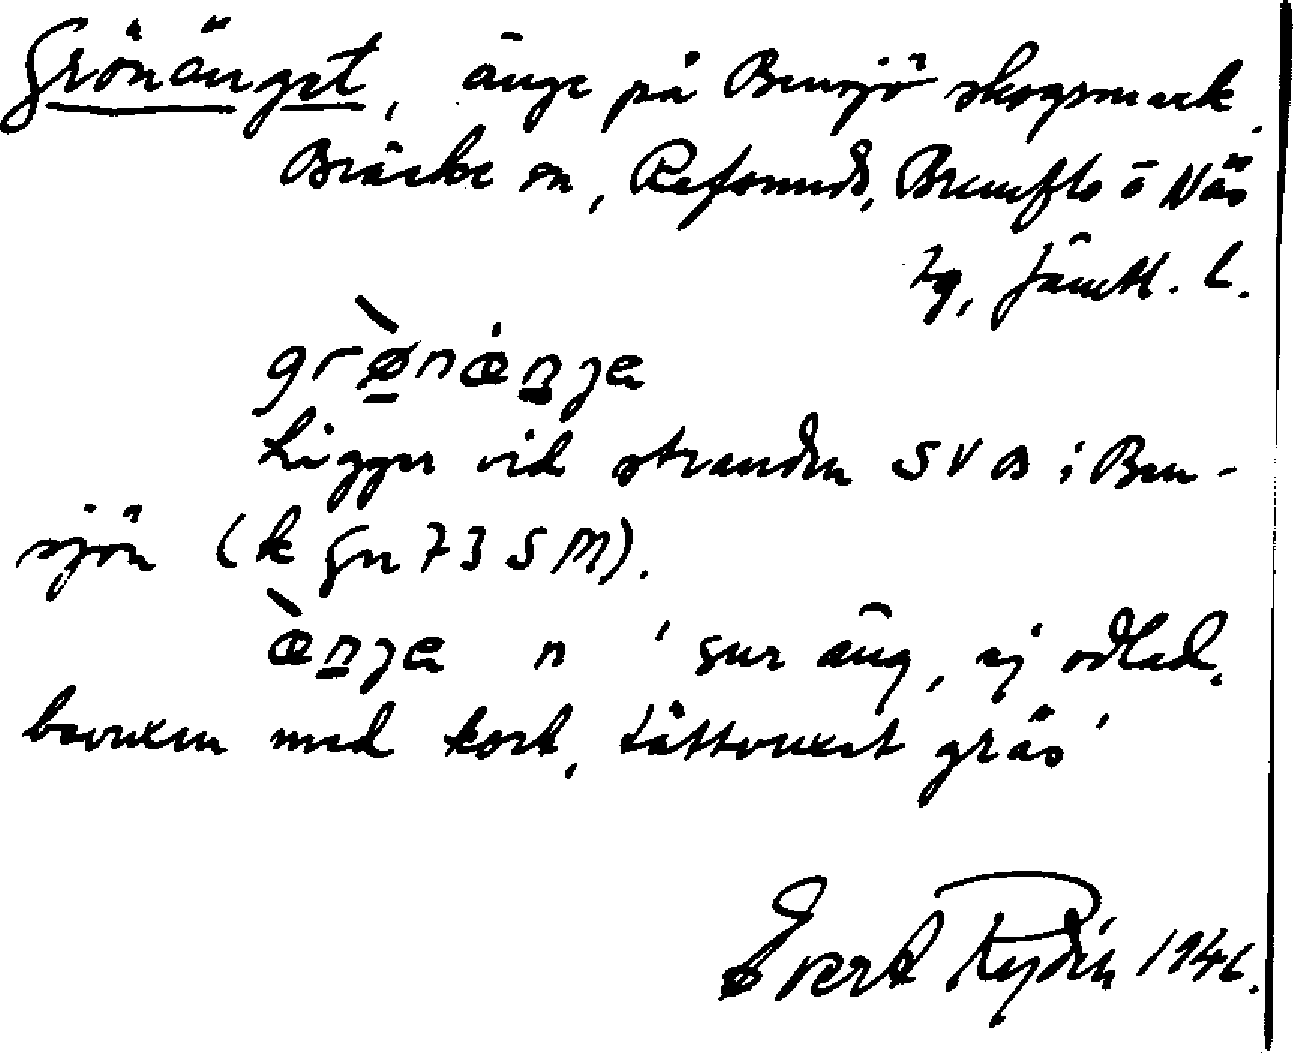 Grönänget, änge på Bensjö skogsmark.
Bräcke sn, Refsunds, Brunflo o Näs
tg, Jämtl. l.
grø̀næ̇nja
Ligger vid stranden SV B i Ben-
sjön (k gn 73 SM).
æ̀nja n 'sur äng, ej odlad,
bevuxen med kort, tättvuxet gräs'
Evert Rydin 1946.